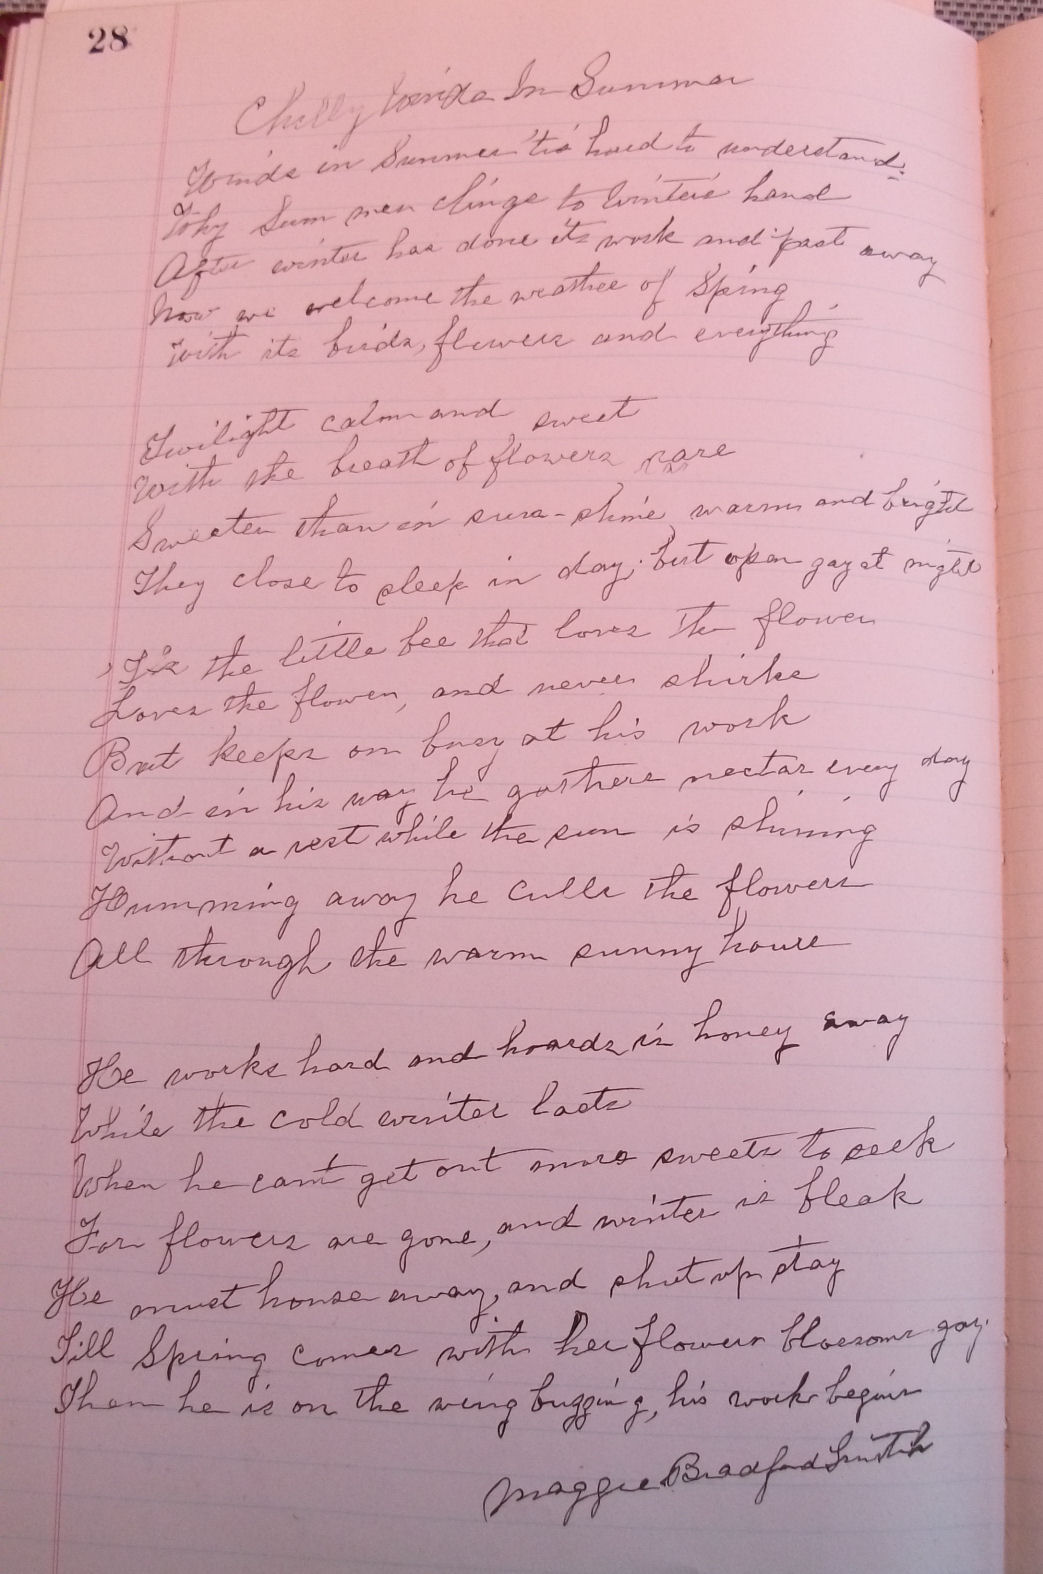 28
Chilly Winds In Summer
Winds in Summer 'tis hard to understand.
Why Summer clings to Winters hand
After winter has done its work and past away
Now we welcome the weather of Spring
With its birds, flowers and everything
Twilight calm and sweet
With the breath of flowers rare
Sweeter than in sun-shine warm and bright
They close to sleep in day, but open gay at night
'Tis the little bee that loves the flower
Loves the flower, and never shirks
But keeps on busy at his work
And in his way he gathers nectar every day
Without a rest while the sun is shining
Humming away he culls the flowers
All through the warm sunny hours
He works hard and hoards is honey away
While the cold winter lasts
When he cant get out more sweets to seek
For flowers are gone, and winter is bleak
He must house away, and shut up stay
Till Spring comes with her flowers blossoms gay.
Then he is on the wing buzzing, his work begins
Maggie Bradford Smith